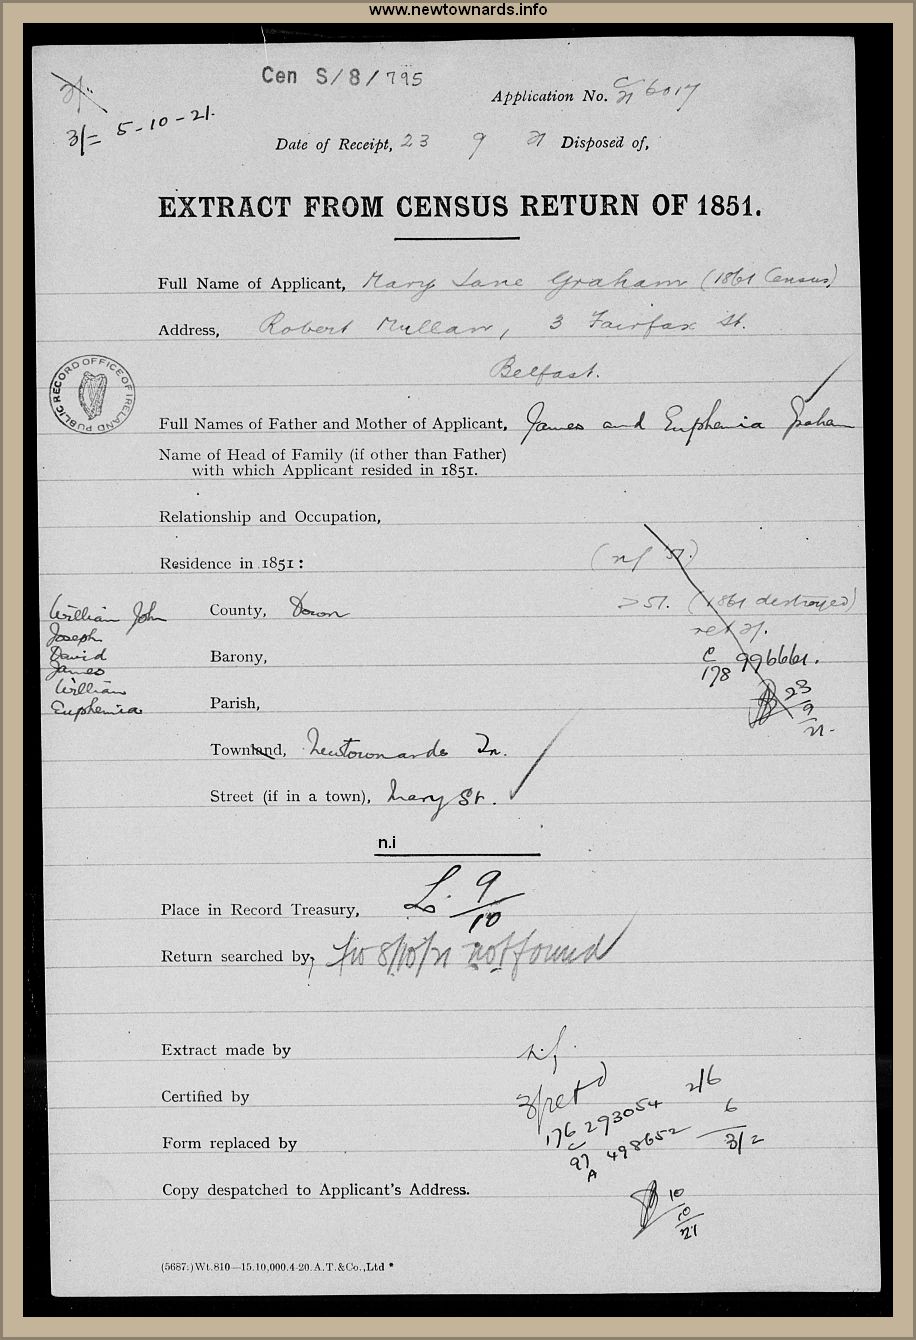 www.newtownards.info
Cen S/8/795
Application No. C/21 6017
3/= 5-10-21.
Date of Receipt, 23 9 21 Disposed of,
EXTRACT FROM CENSUS RETURN OF 1851.
Full Name of Applicant, Mary Jane Graham (1861 Census)
Address, Robert Mullan, 3 Fairfax St.
Belfast.
PUBLIC RECORD OFFICE OF IRELAND
Full Names of Father and Mother of Applicant, James and Euphemia Graham
Name of Head of Family (if other than Father)
with which Applicant resided in 1851.
Relationship and Occupation,
Residence in 1851: (nf 51.)
William John
Joseph
David
James
William
Euphemia
County, Down
51. (1861 destroyed)
ret 21.
Barony, C/178 996661.
23/9/21.
Parish,
Townland, Newtownards Tn.
Street (if in a town), Mary St.
n.i
Place in Record Treasury, L. 9/10
Return searched by, 8/10/21 not found
Extract made by n.f.
Certified by 3/ retd
176/C 293054 2/6
Form replaced by 97/A 498652 6
3/=
Copy despatched to Applicant's Address.
10/10/21
(5687.)Wt.810—15.10,000.4-20.A.T.&Co.,Ltd